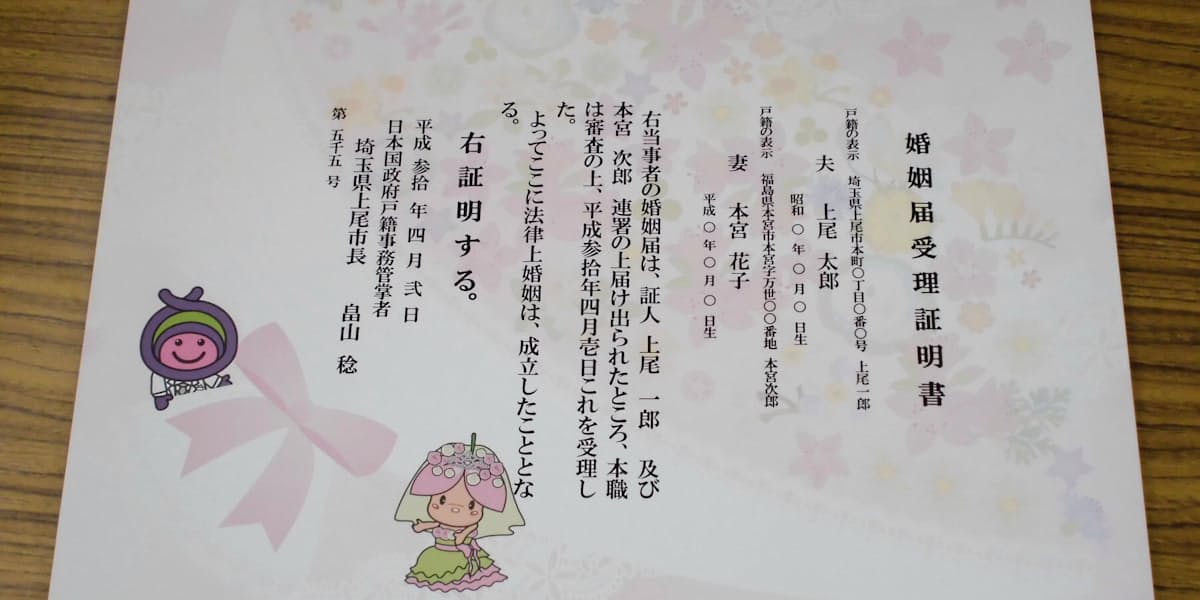 婚姻届受理証明書
戸籍の表示 埼玉県上尾市本町〇丁目〇番〇号 上尾一郎
夫 上尾 太郎
昭和 〇 年 〇 月 〇 日生
戸籍の表示 福島県本宮市本宮字万世〇〇番地 本宮次郎
妻 本宮 花子
平成 〇 年 〇 月 〇 日生
右当事者の婚姻届は、証人 上尾 一郎 及び
本宮 次郎 連署の上届け出られたところ、本職
は審査の上、平成参拾年四月壱日これを受理し
た。
よってここに法律上婚姻は、成立したこととな
る。
右証明する。
平成 参拾 年 四 月 弐 日
日本国政府戸籍事務管掌者
埼玉県上尾市長 畠山 稔
第 五千五 号